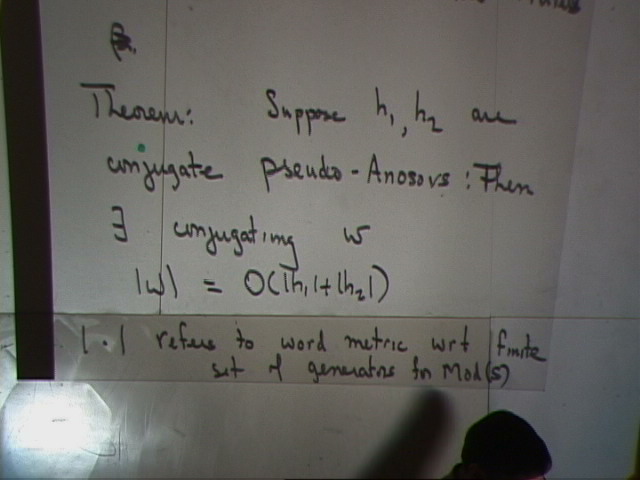 Theorem: Suppose h₁, h₂ are
conjugate pseudo-Anosovs: Then
∃ conjugating w
|w| = O(|h₁|+|h₂|)
|·| refers to word metric wrt finite
set of generators for Mod(S)